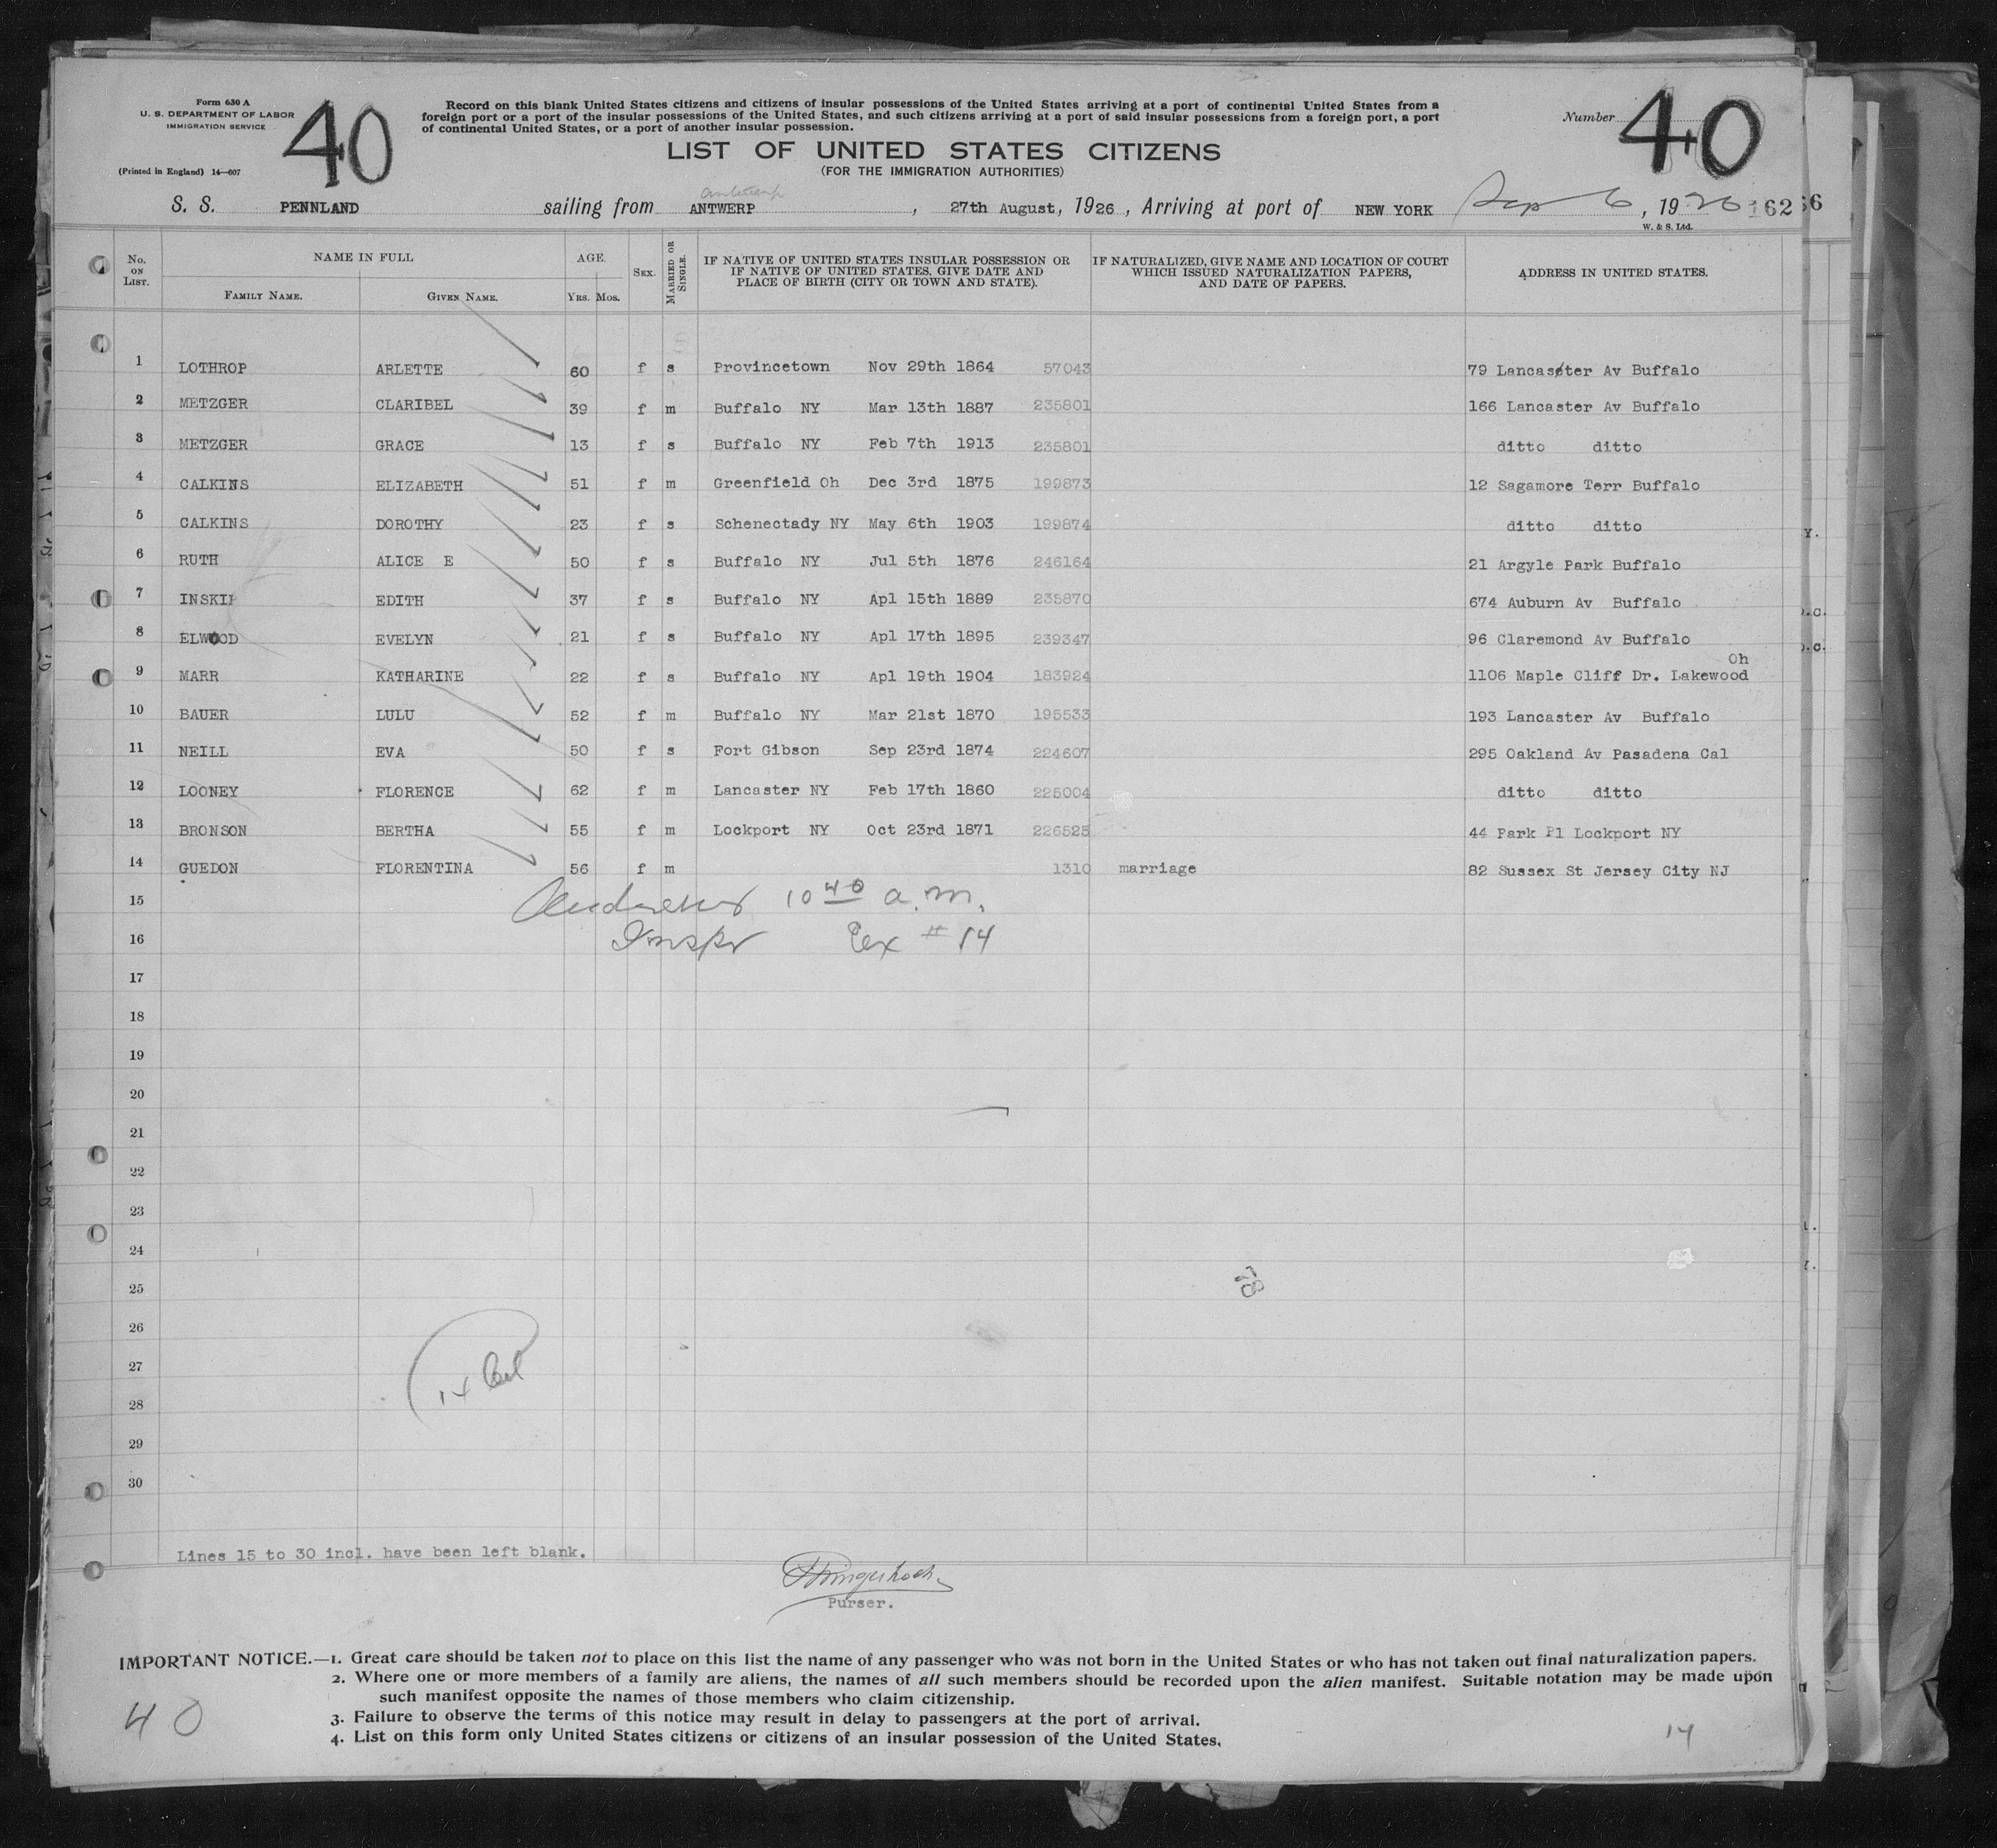 Form 630 A
U. S. DEPARTMENT OF LABOR
IMMIGRATION SERVICE
(Printed in England) 14—607
40
Record on this blank United States citizens and citizens of insular possessions of the United States arriving at a port of continental United States from a
foreign port or a port of the insular possessions of the United States, and such citizens arriving at a port of said insular possessions from a foreign port, a port
of continental United States, or a port of another insular possession.
Number 40
LIST OF UNITED STATES CITIZENS
(FOR THE IMMIGRATION AUTHORITIES)
Antwerp
S. S. PENNLAND sailing from ANTWERP, 27th August, 1926, Arriving at port of NEW YORK Sep 6, 1926 166
W. & S. Ltd.
No. ON LIST. NAME IN FULL AGE. SEX. MARRIED OR SINGLE. IF NATIVE OF UNITED STATES INSULAR POSSESSION OR IF NATIVE OF UNITED STATES, GIVE DATE AND PLACE OF BIRTH (CITY OR TOWN AND STATE). IF NATURALIZED, GIVE NAME AND LOCATION OF COURT WHICH ISSUED NATURALIZATION PAPERS, AND DATE OF PAPERS. ADDRESS IN UNITED STATES.
FAMILY NAME. GIVEN NAME. YRS. MOS.
1 LOTHROP ARLETTE 60 f s Provincetown Nov 29th 1864 57043 79 Lancaster Av Buffalo
2 METZGER CLARIBEL 39 f m Buffalo NY Mar 13th 1887 235801 166 Lancaster Av Buffalo
3 METZGER GRACE 13 f s Buffalo NY Feb 7th 1913 235801 ditto ditto
4 CALKINS ELIZABETH 51 f m Greenfield Oh Dec 3rd 1875 199873 12 Sagamore Terr Buffalo
5 CALKINS DOROTHY 23 f s Schenectady NY May 6th 1903 199874 ditto ditto
6 RUTH ALICE E 50 f s Buffalo NY Jul 5th 1876 246164 21 Argyle Park Buffalo
7 INSKIP EDITH 37 f s Buffalo NY Apl 15th 1889 235870 674 Auburn Av Buffalo
8 ELWOOD EVELYN 21 f s Buffalo NY Apl 17th 1895 239347 96 Claremond Av Buffalo
9 MARR KATHARINE 22 f s Buffalo NY Apl 19th 1904 183924 1106 Maple Cliff Dr. Lakewood Oh
10 BAUER LULU 52 f m Buffalo NY Mar 21st 1870 195533 193 Lancaster Av Buffalo
11 NEILL EVA 50 f s Fort Gibson Sep 23rd 1874 224607 295 Oakland Av Pasadena Cal
12 LOONEY FLORENCE 62 f m Lancaster NY Feb 17th 1860 225004 ditto ditto
13 BRONSON BERTHA 55 f m Lockport NY Oct 23rd 1871 226525 44 Park Pl Lockport NY
14 GUEDON FLORENTINA 56 f m 1310 marriage 82 Sussex St Jersey City NJ
15 10 40 a.m.
16 Inspr Ex # 14
17
18
19
20
21
22
23
24
25
78
26
27
14
28
29
30
Lines 15 to 30 incl. have been left blank.
Purser.
IMPORTANT NOTICE.—1. Great care should be taken not to place on this list the name of any passenger who was not born in the United States or who has not taken out final naturalization papers.
2. Where one or more members of a family are aliens, the names of all such members should be recorded upon the alien manifest. Suitable notation may be made upon
such manifest opposite the names of those members who claim citizenship.
3. Failure to observe the terms of this notice may result in delay to passengers at the port of arrival.
4. List on this form only United States citizens or citizens of an insular possession of the United States.
40
14